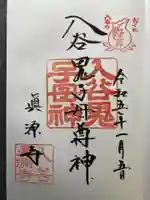 令和五年一月五日
入谷鬼子母尊神
入谷鬼
子母神
眞源寺